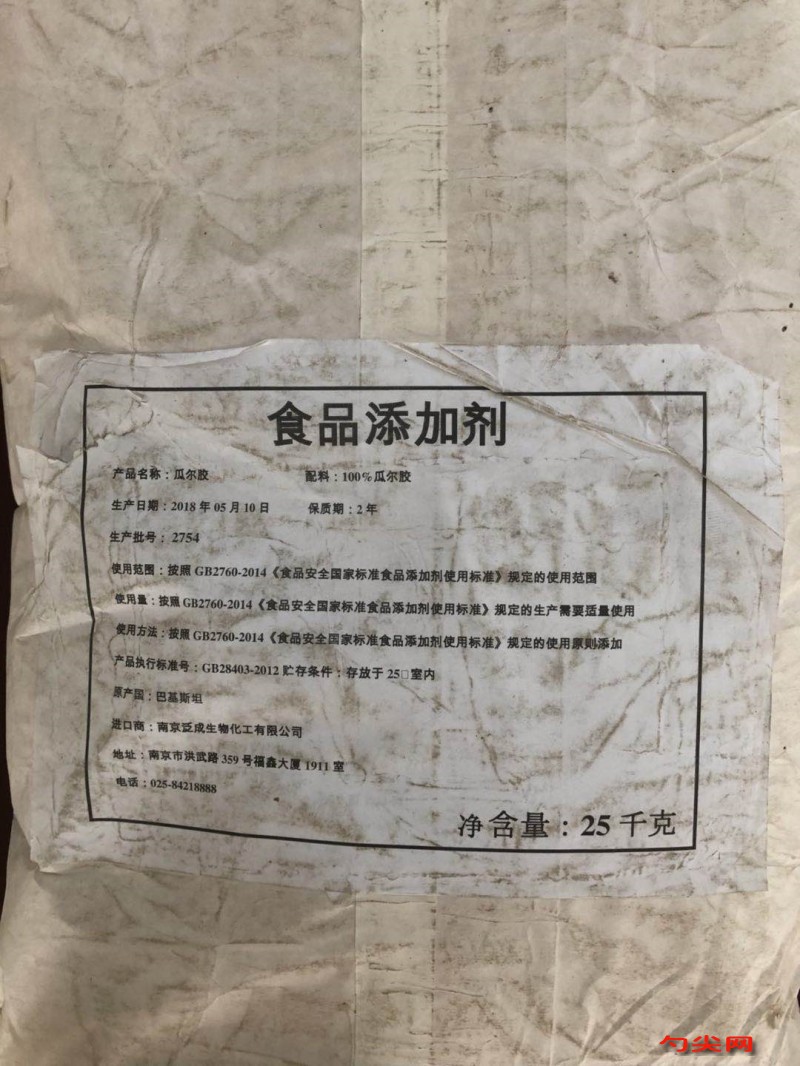 食品添加剂
产品名称：瓜尔胶 配料：100%瓜尔胶
生产日期：2018 年 05 月 10 日 保质期：2 年
生产批号： 2754
使用范围：按照 GB2760-2014《食品安全国家标准食品添加剂使用标准》规定的使用范围
使用量：按照 GB2760-2014《食品安全国家标准食品添加剂使用标准》规定的生产需要适量使用
使用方法：按照 GB2760-2014《食品安全国家标准食品添加剂使用标准》规定的使用原则添加
产品执行标准号：GB28403-2012 贮存条件：存放于 25□室内
原产国：巴基斯坦
进口商：南京泛成生物化工有限公司
地址：南京市洪武路 359 号福鑫大厦 1911 室
电话：025-84218888
净含量：25 千克
勺尖网